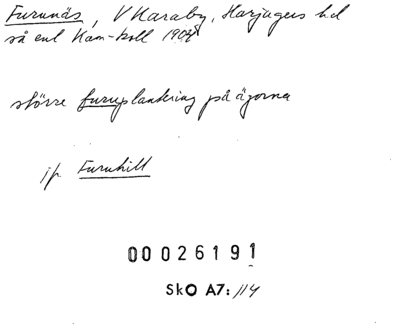 Furunäs, V Karaby, Harjagers hd
så enl Kam-koll 1904
större furuplantering på ägorna
jfr Furuhill
00026191
SkO A7: 114